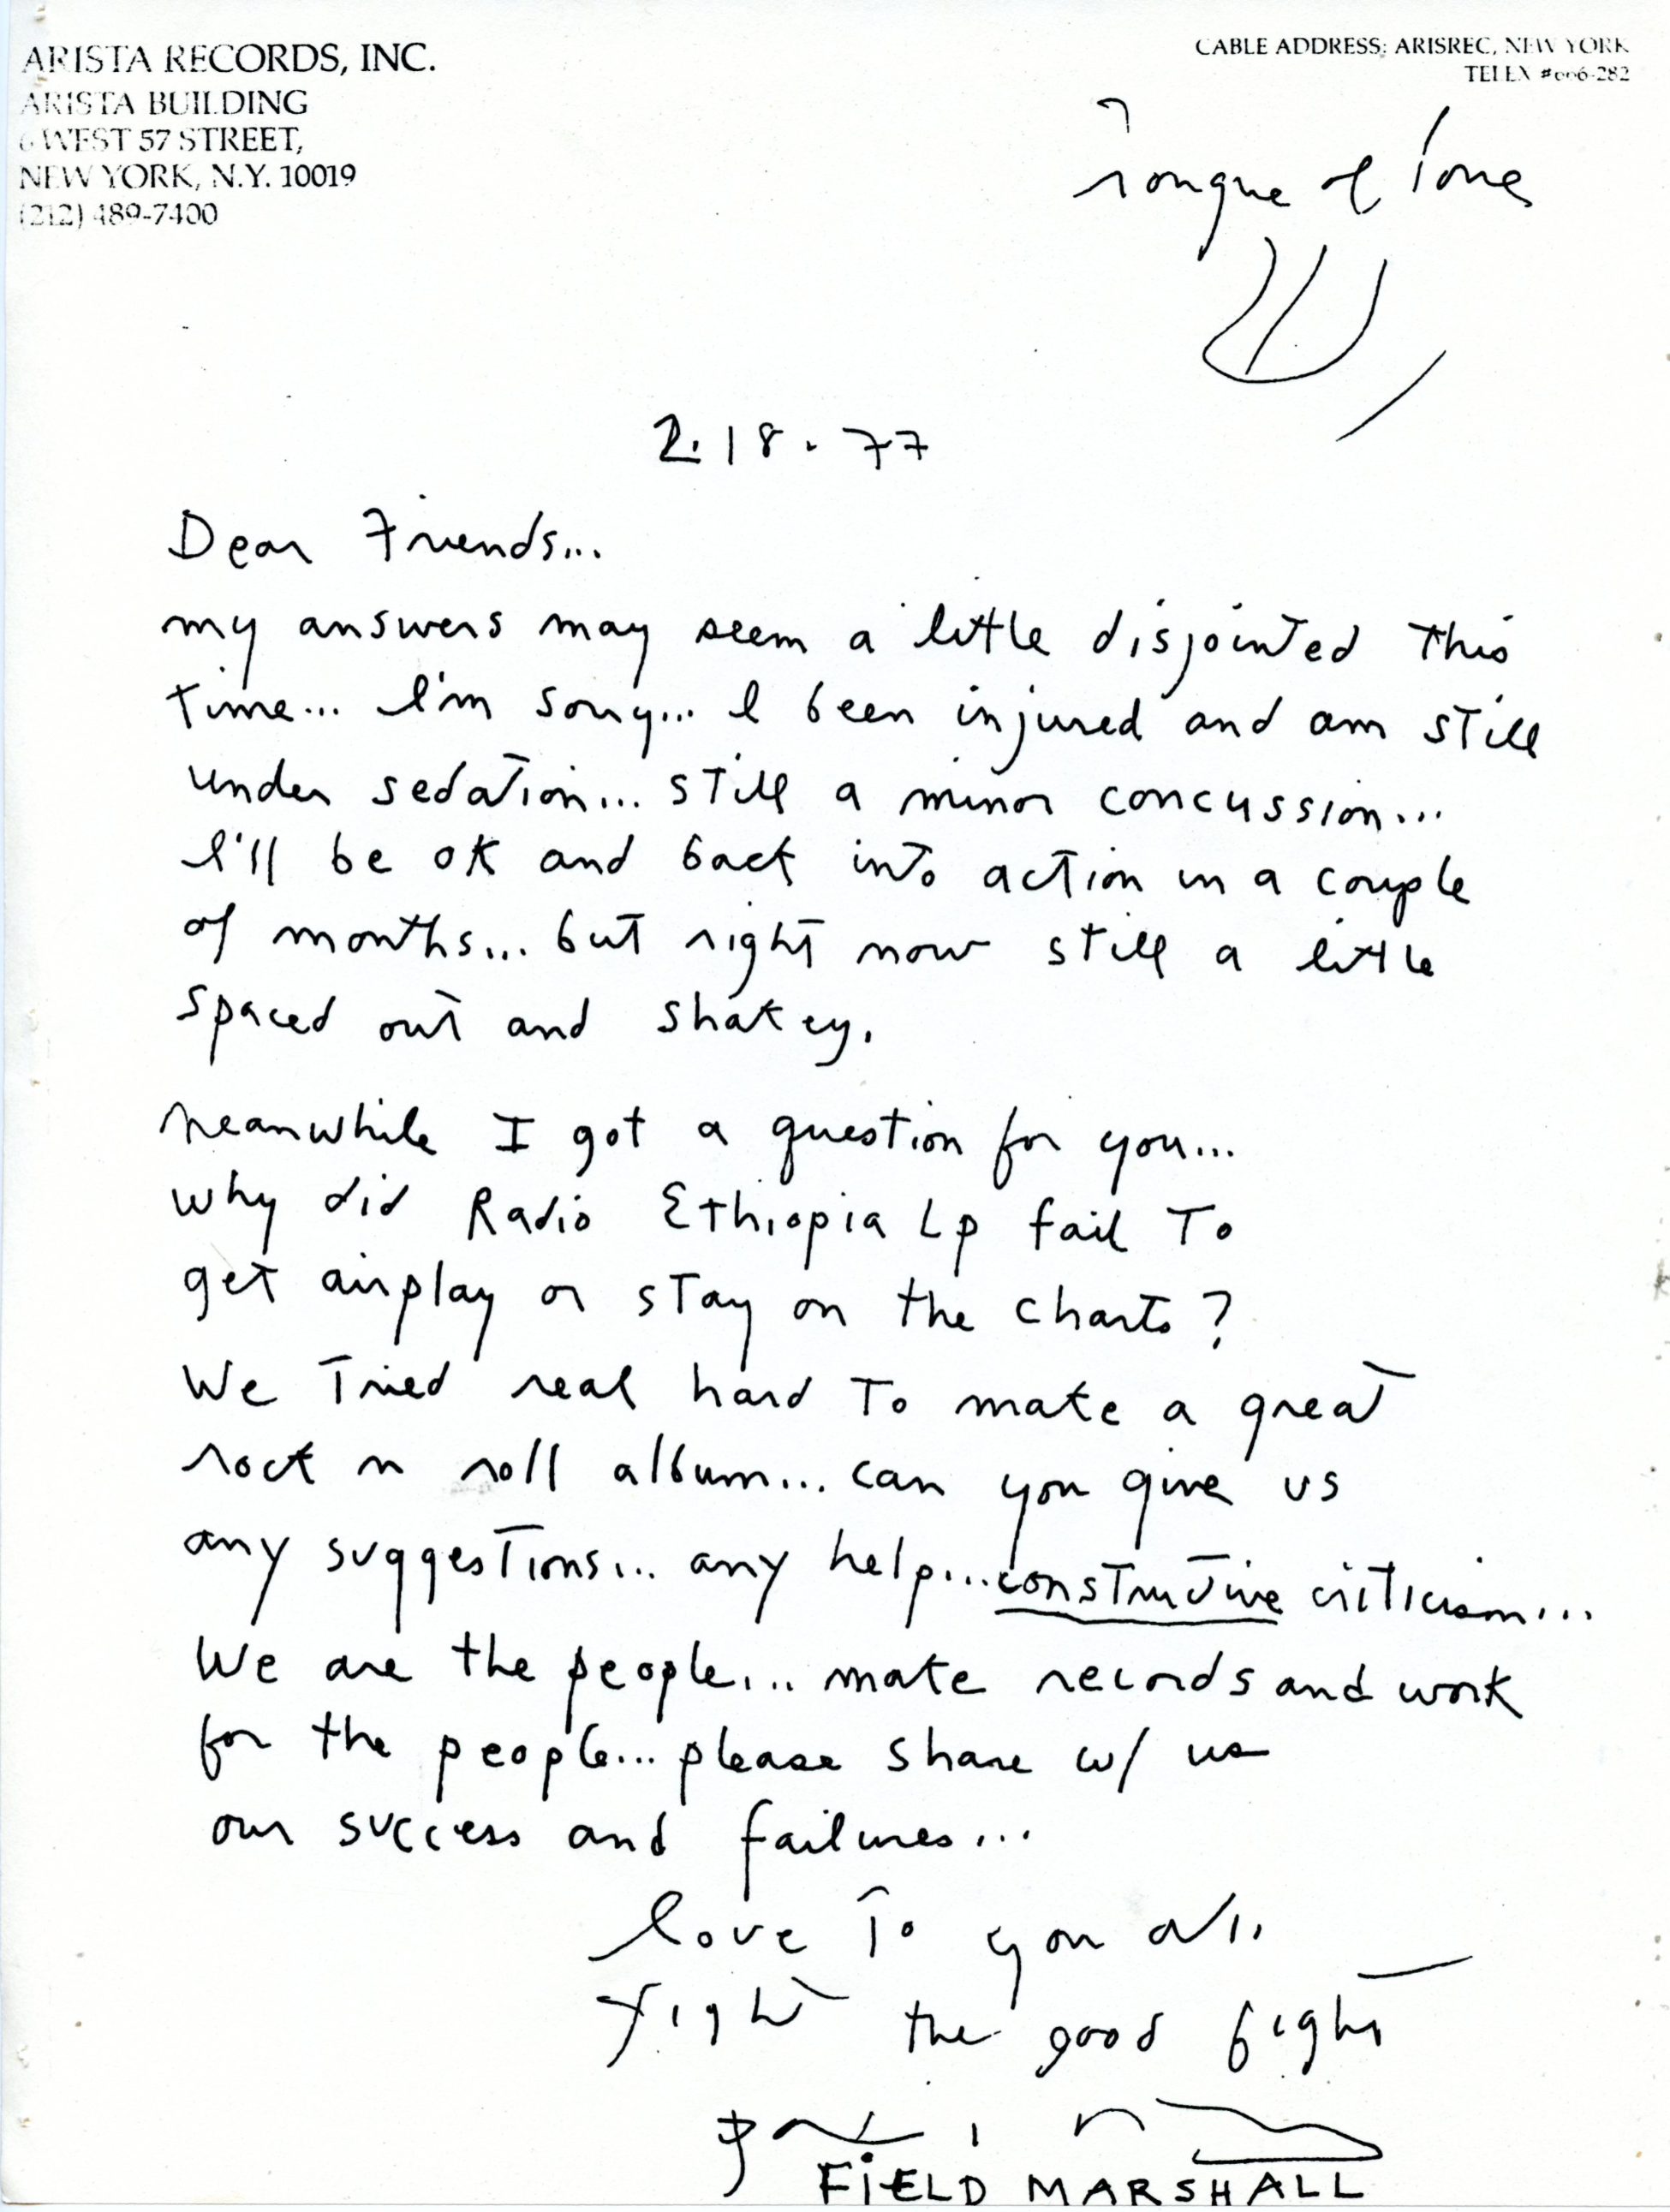 ARISTA RECORDS, INC.
ARISTA BUILDING
6 WEST 57 STREET,
NEW YORK, N.Y. 10019
(212) 489-7400
CABLE ADDRESS: ARISREC, NEW YORK
TELEX #666-282
Tongue of love
2.18.77
Dear Friends...
my answers may seem a little disjointed this
time... I'm sorry... I been injured and am still
under sedation... still a minor concussion...
I'll be ok and back into action in a couple
of months... but right now still a little
spaced out and shakey.
meanwhile I got a question for you...
why did Radio Ethiopia Lp fail to
get airplay or stay on the charts?
We tried real hard to make a great
rock n roll album... can you give us
any suggestions... any help... constructive criticism...
We are the people... make records and work
for the people... please share w/ us
our success and failures...
love to you all
fight the good fight
FIELD MARSHALL